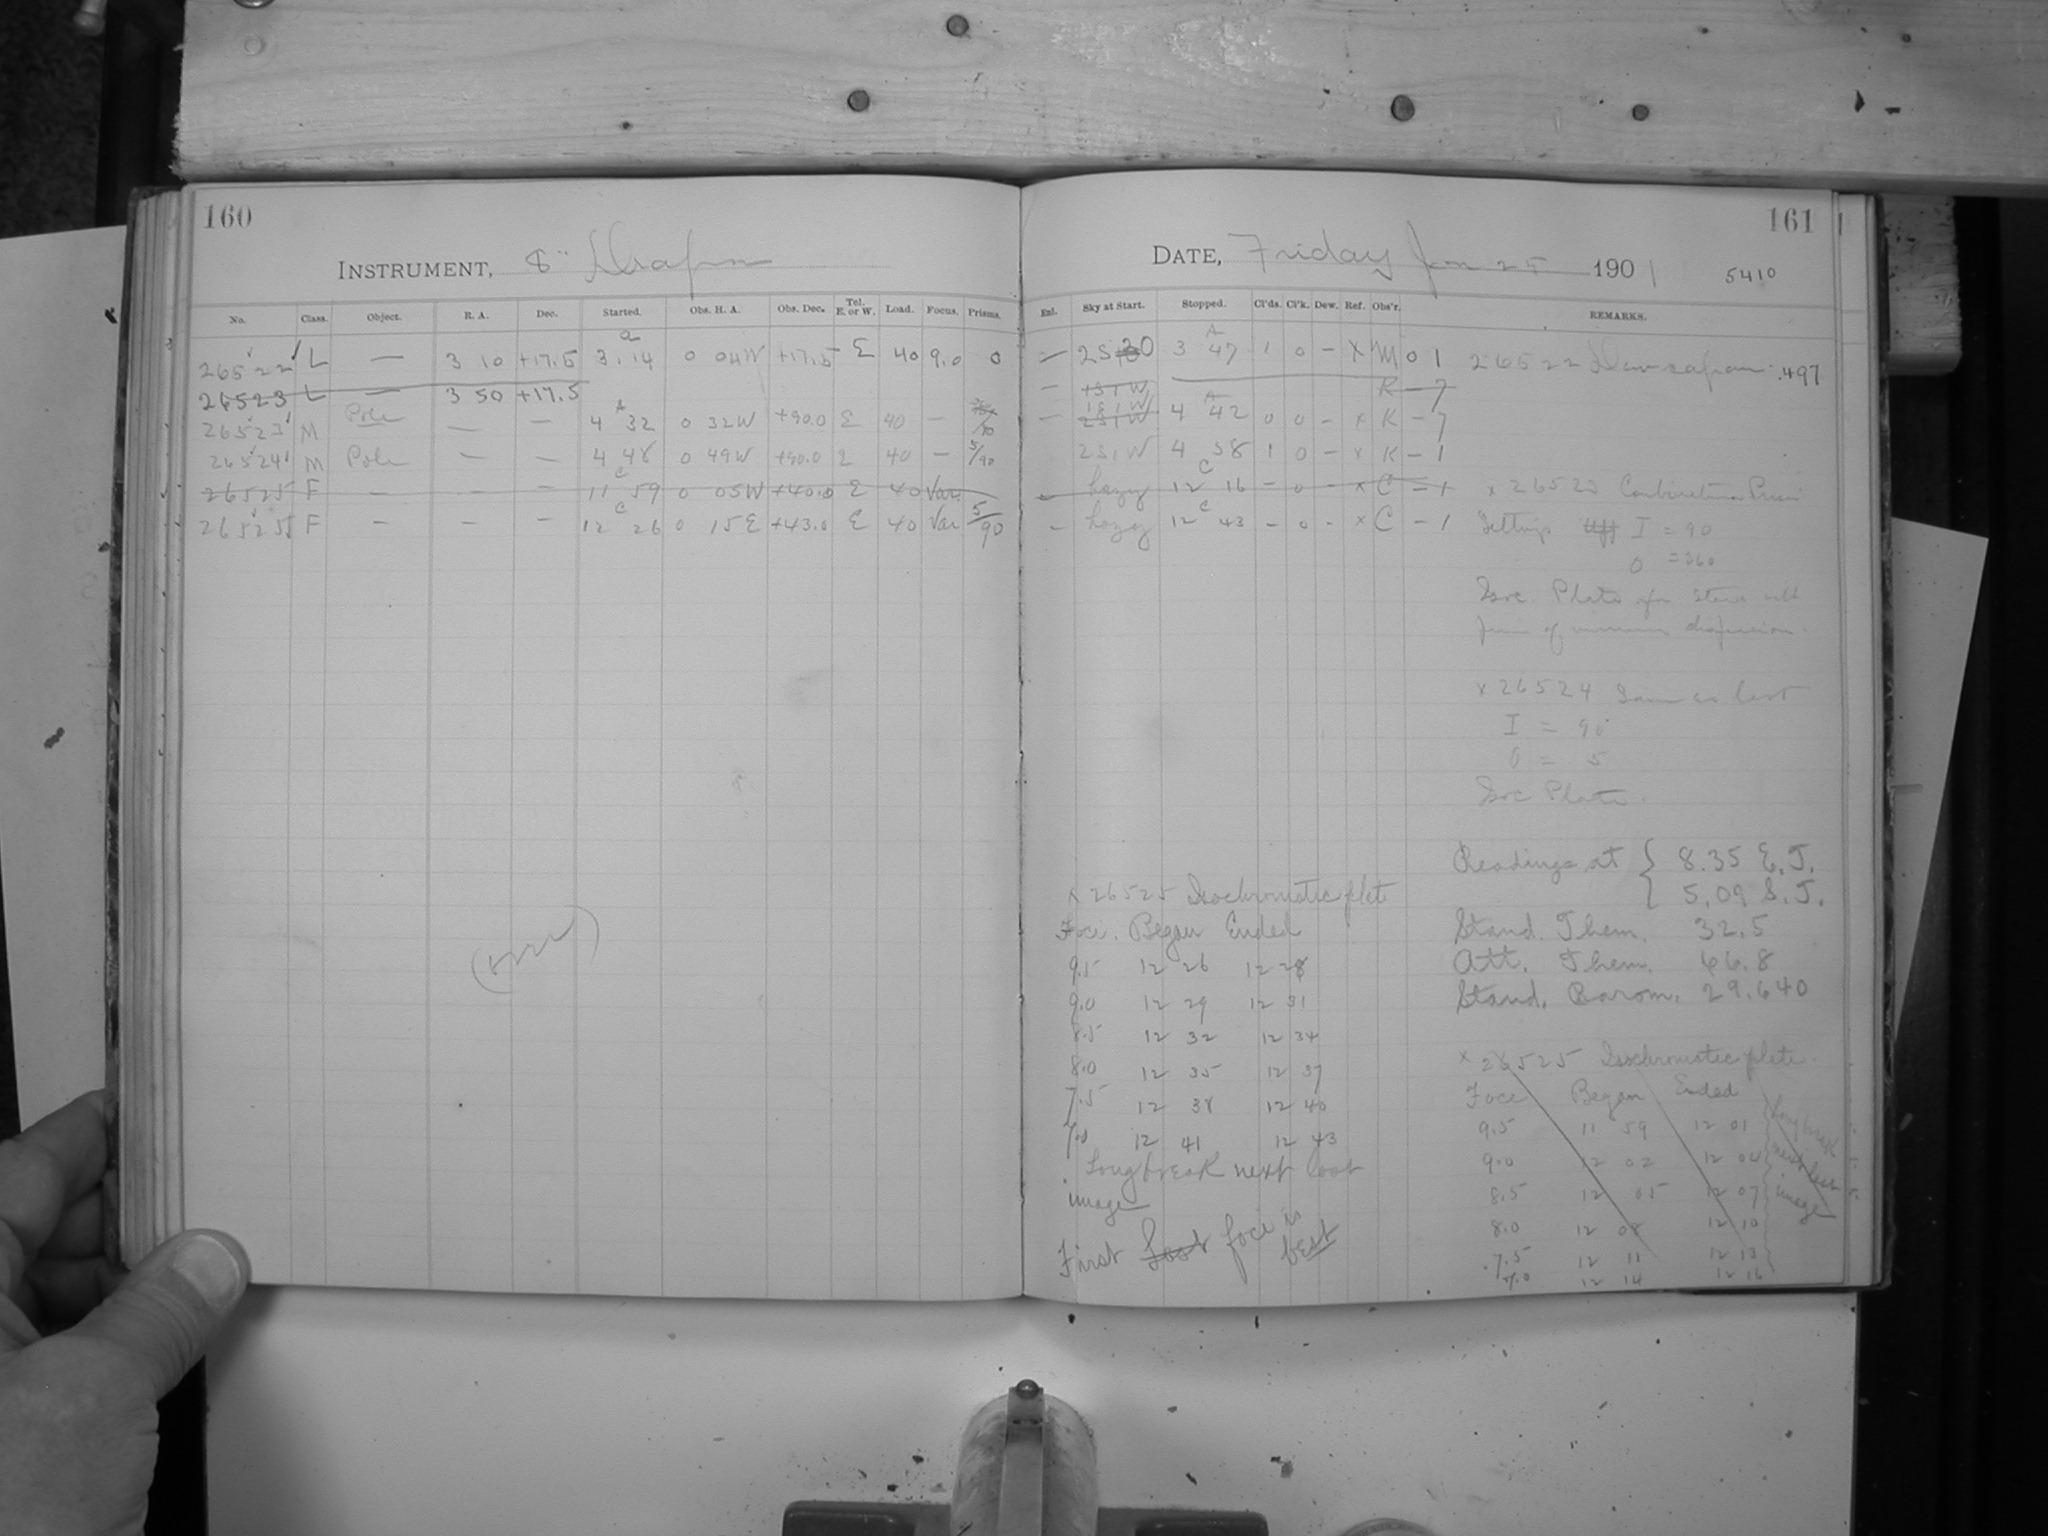 160
INSTRUMENT, 8" Draper
No. Class. Object. R. A. Dec. Started. Obs. H. A. Obs. Dec. Tel. E. or W. Load. Focus. Prisms.
26522 L — 3 10 +17.5 3.14 0 04W +17.5 E 40 9.0 0
26523 L — 3 50 +17.5
26523 M Pole — — 4 32 0 32W +90.0 E 40 — /90
26524 M Pole — — 4 48 0 49W +90.0 E 40 — 5/90
26525 F — — — 11 59 0 05W +40.0 E 40 Var.
26525 F — — — 12 26 0 15E +43.0 E 40 Var 5/90
161
DATE, Friday Jan 25 1901 5410
Enl. Sky at Start. Stopped. Cl'ds. Cl'k. Dew. Ref. Obs'r. REMARKS.
3 47 1 0 — X M 0 1 26522 .497
K — 7
— 4 42 0 0 — x K — 7
2S1W 4 58 1 0 — x K — 1
— hazy 12 16 — 0 — x C — 1
— hazy 12 43 — 0 — x C — 1
Settings I = 90
O = 360
Isoc. Plate
x 26524 Same as last
I = 90
O = 5
Isoc Plate.
Readings at { 8.35 E.T.
5.09 S.T.
Stand. Them. 32.5
Att. Them. 66.8
Stand. Barom. 29.640
x 26525 Isochromatic plate
Foci. Began Ended
9.5 12 26 12 28
9.0 12 29 12 31
8.5 12 32 12 34
8.0 12 35 12 37
7.5 12 38 12 40
7.0 12 41 12 43
Long break next last
image
First last foci is
best
x 26525 Isochromatic plate.
Foci Began Ended
9.5 11 59 12 01
9.0 12 02 12 04
8.5 12 05 12 07
8.0 12 08 12 10
7.5 12 11 12 13
7.0 12 14 12 16
Long break
next last
image